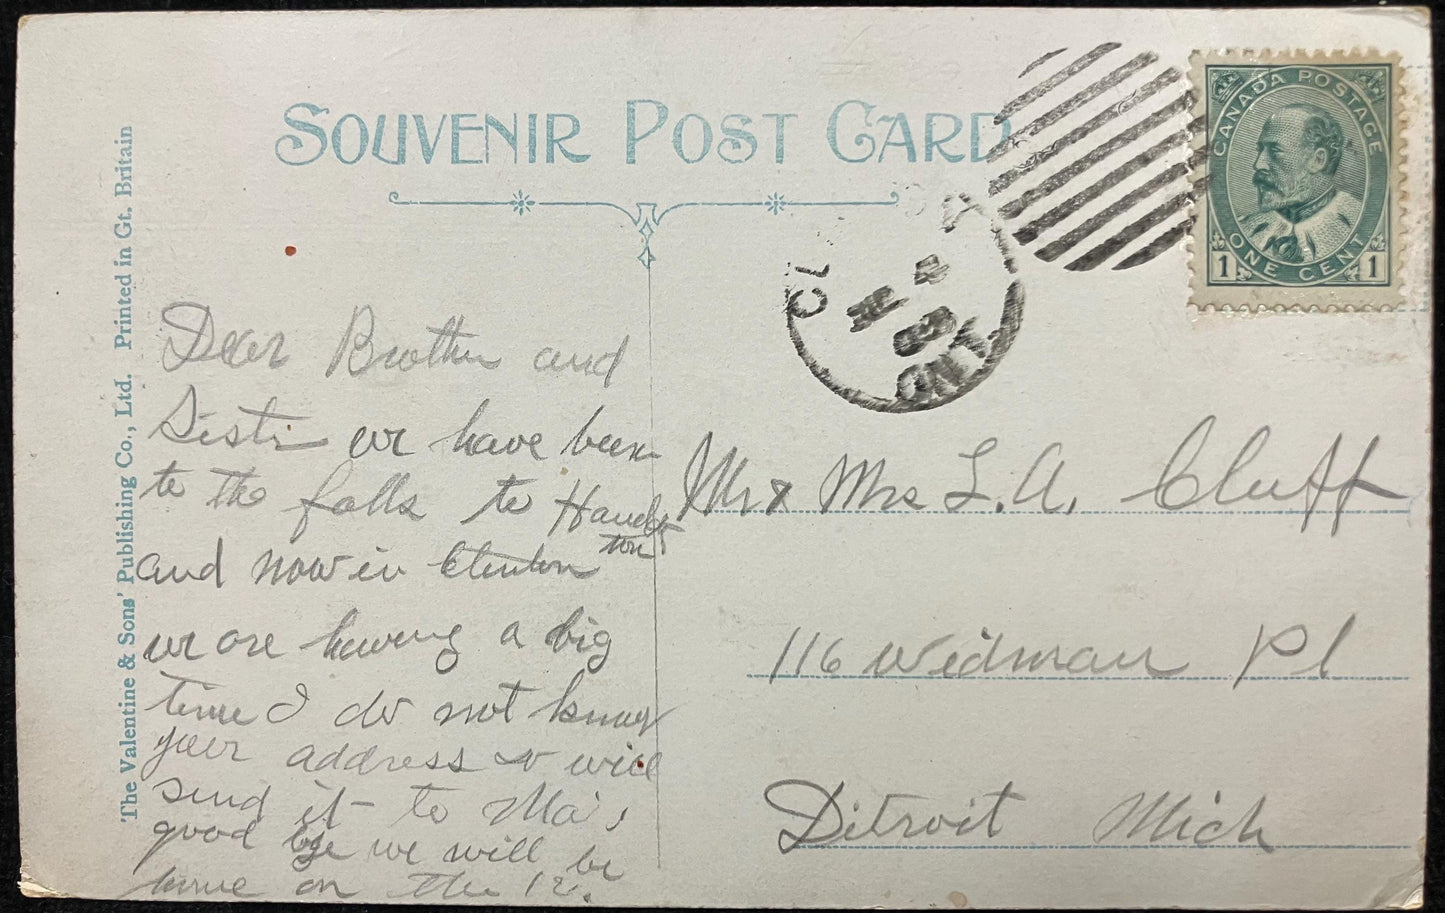 SOUVENIR POST CARD
CANADA POSTAGE
ONE CENT
1 1
CL
ONT
The Valentine & Sons' Publishing Co., Ltd. Printed in Gt. Britain
Dear Brother and
Sister we have been
to the falls to Hamil
ton
and now in Clinton
we are having a big
time I do not know
your address so will
send it to Ma's
good bye we will be
home on the 12.
Mr & Mrs L. A. Cluff
116 Widman Pl
Ditroit Mich